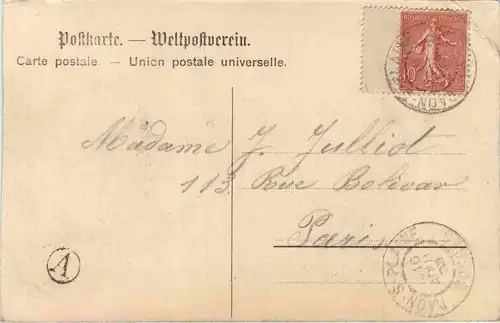 Postkarte. — Weltpostverein.
Carte postale. — Union postale universelle.
10
Madame J. Julliot
113 Rue Bolivar
Paris
A